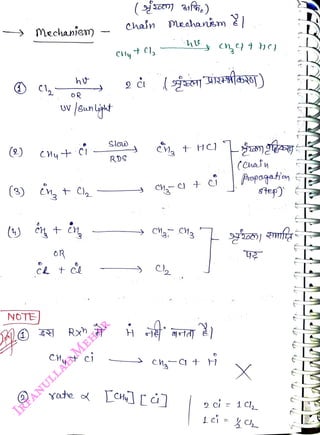 (शृंखला अभि.)
→ Mechanism – chain Mechanism है।
CH₄ + Cl₂ —hν→ CH₃Cl + HCl
① Cl₂ —hν OR UV/Sunlight→ 2 Ċl (शृंखला प्रारम्भीकरण)
(2) CH₄ + Ċl —Slow RDS→ ĊH₃ + HCl
(3) ĊH₃ + Cl₂ → CH₃-Cl + Ċl
(Chain Propagation Step)
(4) ĊH₃ + ĊH₃ → CH₃-CH₃
OR
Ċl + Ċl → Cl₂
शृंखला समाप्ति पद
NOTE
① इस Rxⁿ में Ḣ नहीं बनता है।
CH₄ + Ċl → CH₃-Cl + Ḣ ✗
② rate ∝ [CH₄] [Ċl]
2 Ċl = 1 Cl₂
1 Ċl = ½ Cl₂
IRFANULLAH MEHAR